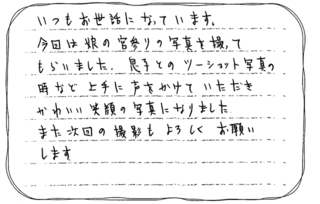 いつもお世話になっています。
今回は娘の宮参りの写真を撮って
もらいました。息子とのツーショット写真の
時など上手に声をかけていただき
かわいい笑顔の写真になりました
また次回の撮影もよろしくお願い
します